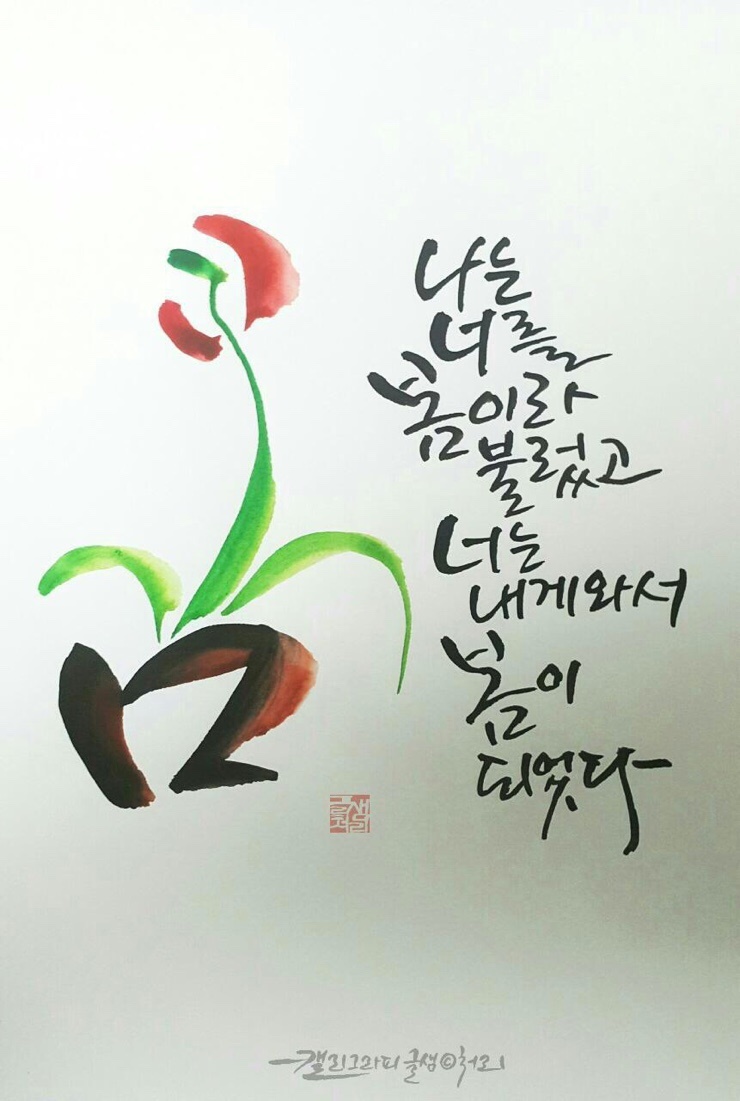 나는
너를
봄이라
불렀고
너는
내게와서
봄이
되었다
캘리그라피 글샘©허리